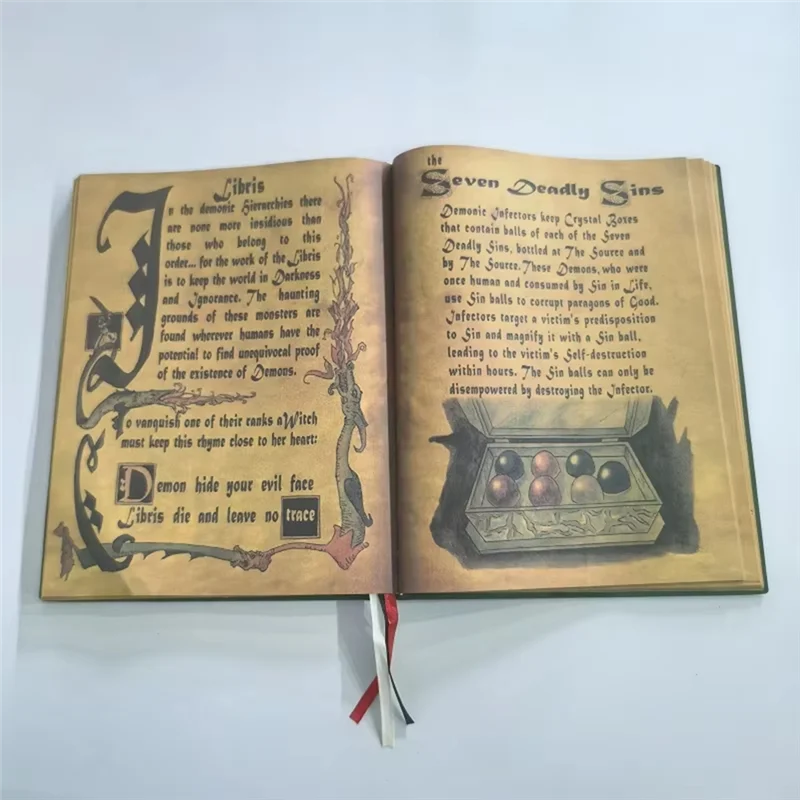 Libris
In the demonic Hierarchies there
are none more insidious than
those who belong to this
order... for the work of the Libris
is to keep the world in Darkness
and Ignorance. The haunting
grounds of these monsters are
found wherever humans have the
potential to find unequivocal proof
of the existence of Demons.
To vanquish one of their ranks a Witch
must keep this rhyme close to her heart:
"Demon hide your evil face
Libris die and leave no trace
the
Seven Deadly Sins
Demonic Infectors keep Crystal Boxes
that contain balls of each of the Seven
Deadly Sins, bottled at The Source and
by The Source. These Demons, who were
once human and consumed by Sin in Life,
use Sin balls to corrupt paragons of Good.
Infectors target a victim's predisposition
to Sin and magnify it with a Sin ball,
leading to the victim's Self-destruction
within hours. The Sin balls can only be
disempowered by destroying the Infector.